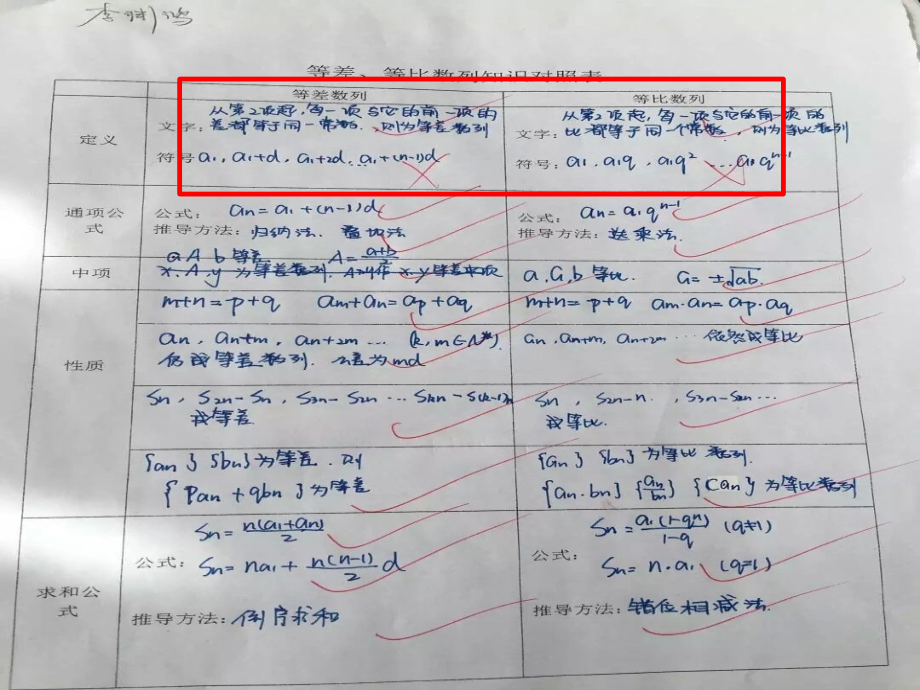 等差、等比数列知识对照表
等差数列 等比数列
定义
从第2项起,每一项与它的前一项的
文字:差都等于同一常数,则为等差数列
符号 a₁, a₁+d, a₁+2d, … a₁+(n-1)d
从第2项起,每一项与它的前一项的
文字:比都等于同一个常数,则为等比数列
符号: a₁, a₁q, a₁q² … a₁qⁿ⁻¹
通项公式
公式: an=a₁+(n-1)d
推导方法:归纳法. 叠加法
公式: an=a₁qⁿ⁻¹
推导方法:迭乘法.
中项
a A b 等差 A=(a+b)/2
x, A, y 为等差数列,
a, G, b 等比. G=±√ab.
性质
m+n=p+q am+an=ap+aq
m+n=p+q am·an=ap·aq
an, an+m, an+2m … (k, m∈N*)
仍成等差数列. 公差为md
an, an+m, an+2m … 依然成等比
Sn, S2n-Sn, S3n-S2n … Skn-S(k-1)n
成等差
Sn, S2n-n, S3n-S2n…
成等比.
{an} {bn}为等差. 则
{pan+qbn}为等差
{an} {bn}为等比数列.
{an·bn} {an/bn} {Can}为等比数列
求和公式
Sn=n(a₁+an)/2
公式: Sn=na₁+n(n-1)/2 d
推导方法:倒序求和
Sn=a₁(1-qⁿ)/1-q (q≠1)
公式: Sn=n·a₁ (q=1)
推导方法:错位相减法.